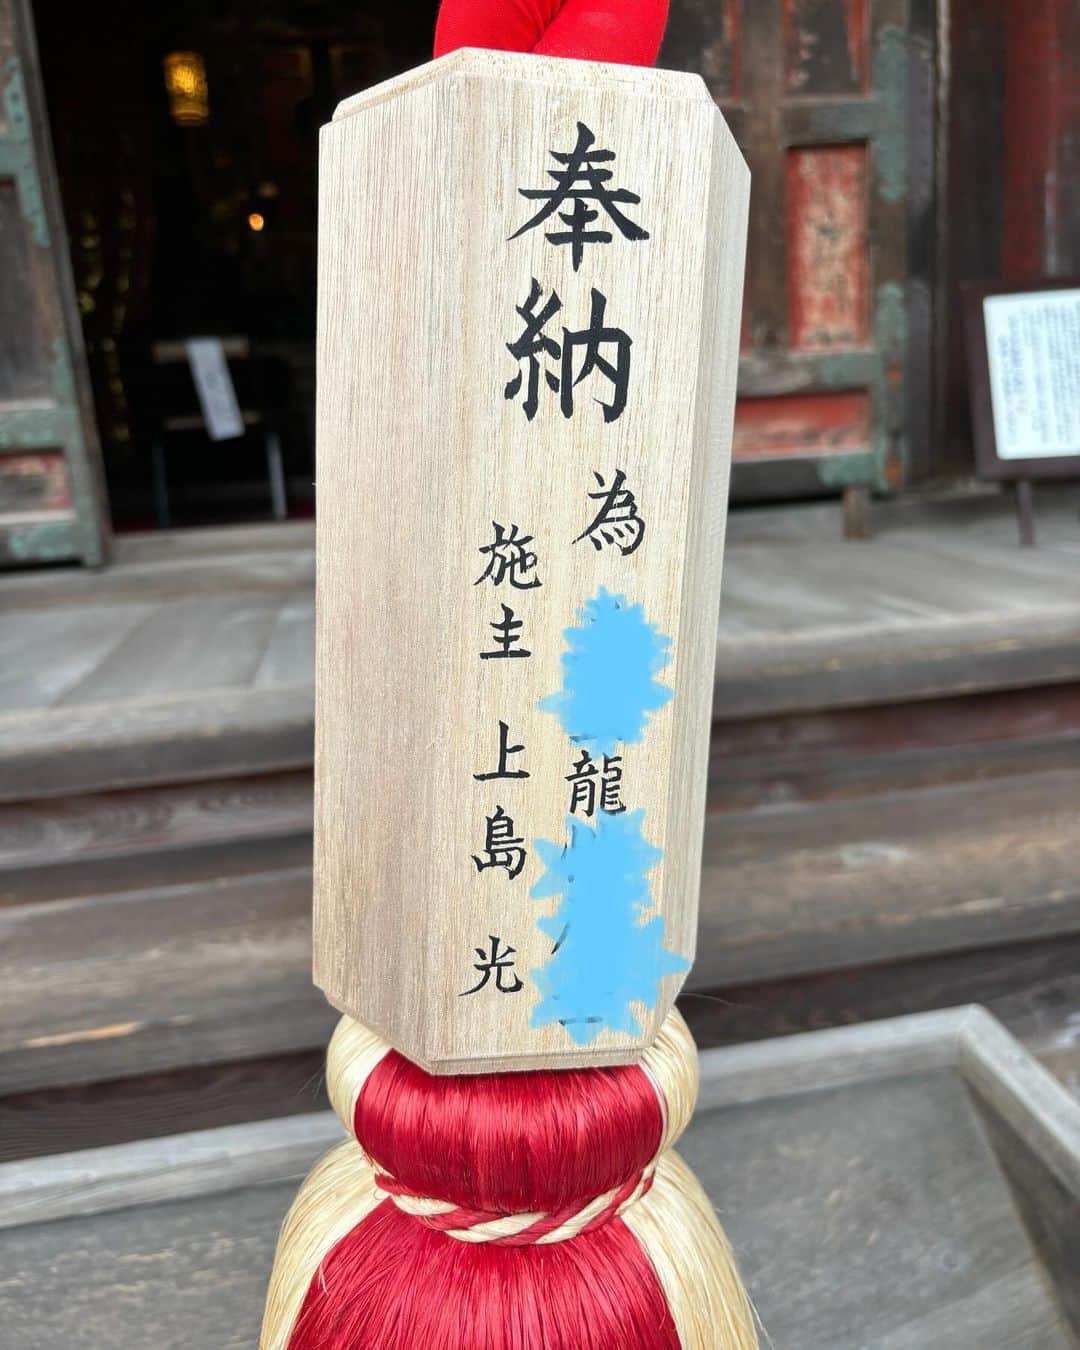 奉納
為
龍
施主 上島 光